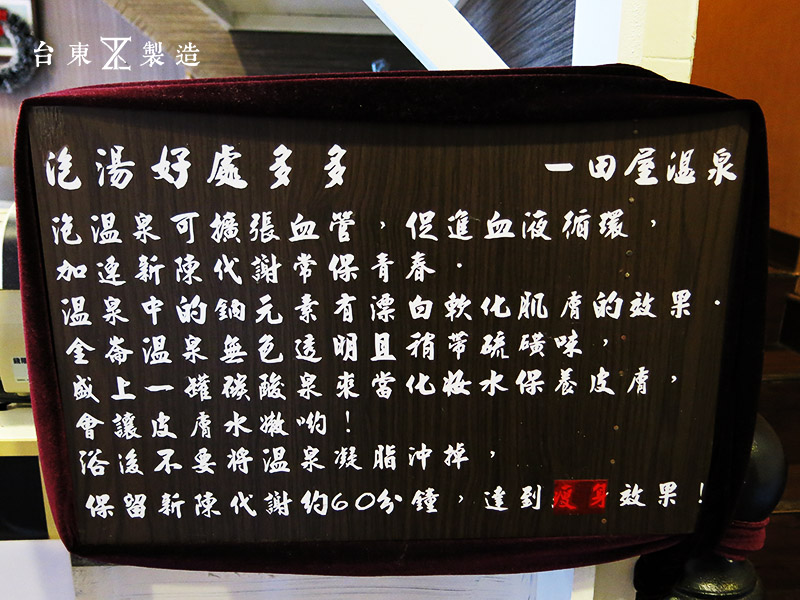 台東製造
泡湯好處多多 一田屋溫泉
泡溫泉可擴張血管，促進血液循環，
加速新陳代謝常保青春．
溫泉中的鈉元素有漂白軟化肌膚的效果．
金崙溫泉無色透明且稍帶硫磺味，
盛上一罐碳酸泉來當化妝水保養皮膚，
會讓皮膚水嫩喲！
浴後不要將溫泉凝脂沖掉，
保留新陳代謝約60分鐘，達到瘦身效果！